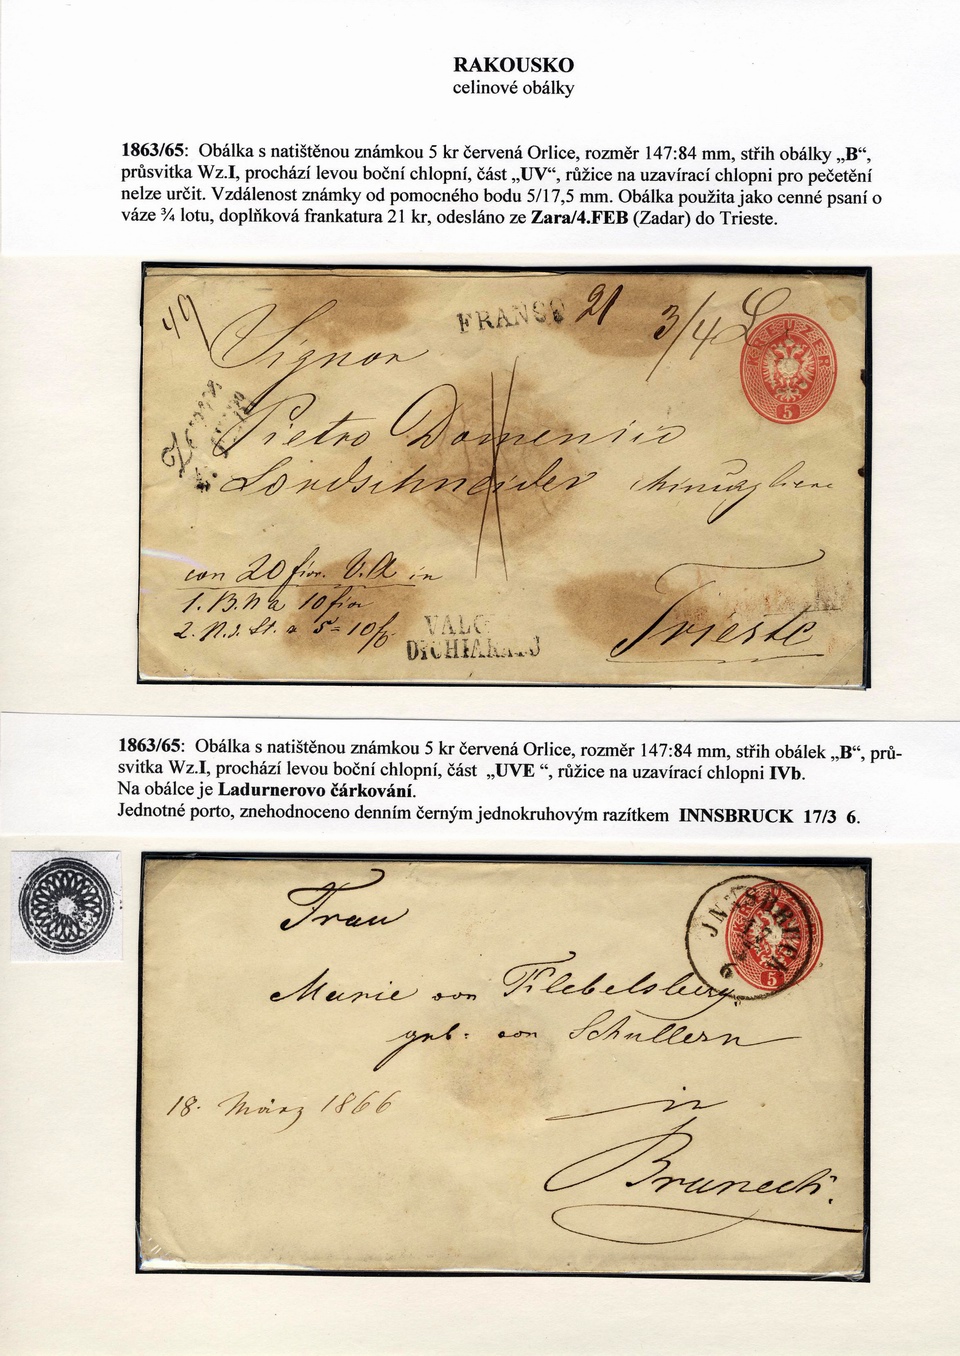 RAKOUSKO
celinové obálky
1863/65: Obálka s natištěnou známkou 5 kr červená Orlice, rozměr 147:84 mm, střih obálky „B“,
průsvitka Wz.I, prochází levou boční chlopní, část „UV“, růžice na uzavírací chlopni pro pečetění
nelze určit. Vzdálenost známky od pomocného bodu 5/17,5 mm. Obálka použita jako cenné psaní o
váze ¾ lotu, doplňková frankatura 21 kr, odesláno ze Zara/4.FEB (Zadar) do Trieste.
FRANCO 21 3/4 L
Signor
KREUZER
5
Pietro Domenico
Lordschneider
con 20 fior. V.A in
1. B.N a 10 fior
2. N.d. St. a 5 = 10 f
VALO
DICHIARATO
Trieste
1863/65: Obálka s natištěnou známkou 5 kr červená Orlice, rozměr 147:84 mm, střih obálek „B“, prů-
svitka Wz.I, prochází levou boční chlopní, část „UVE “, růžice na uzavírací chlopni IVb.
Na obálce je Ladurnerovo čárkování.
Jednotné porto, znehodnoceno denním černým jednokruhovým razítkem INNSBRUCK 17/3 6.
Frau
INNSBRUCK
5
Marie von
geb: von Schullern
18. März 1866
in
Bruneck.